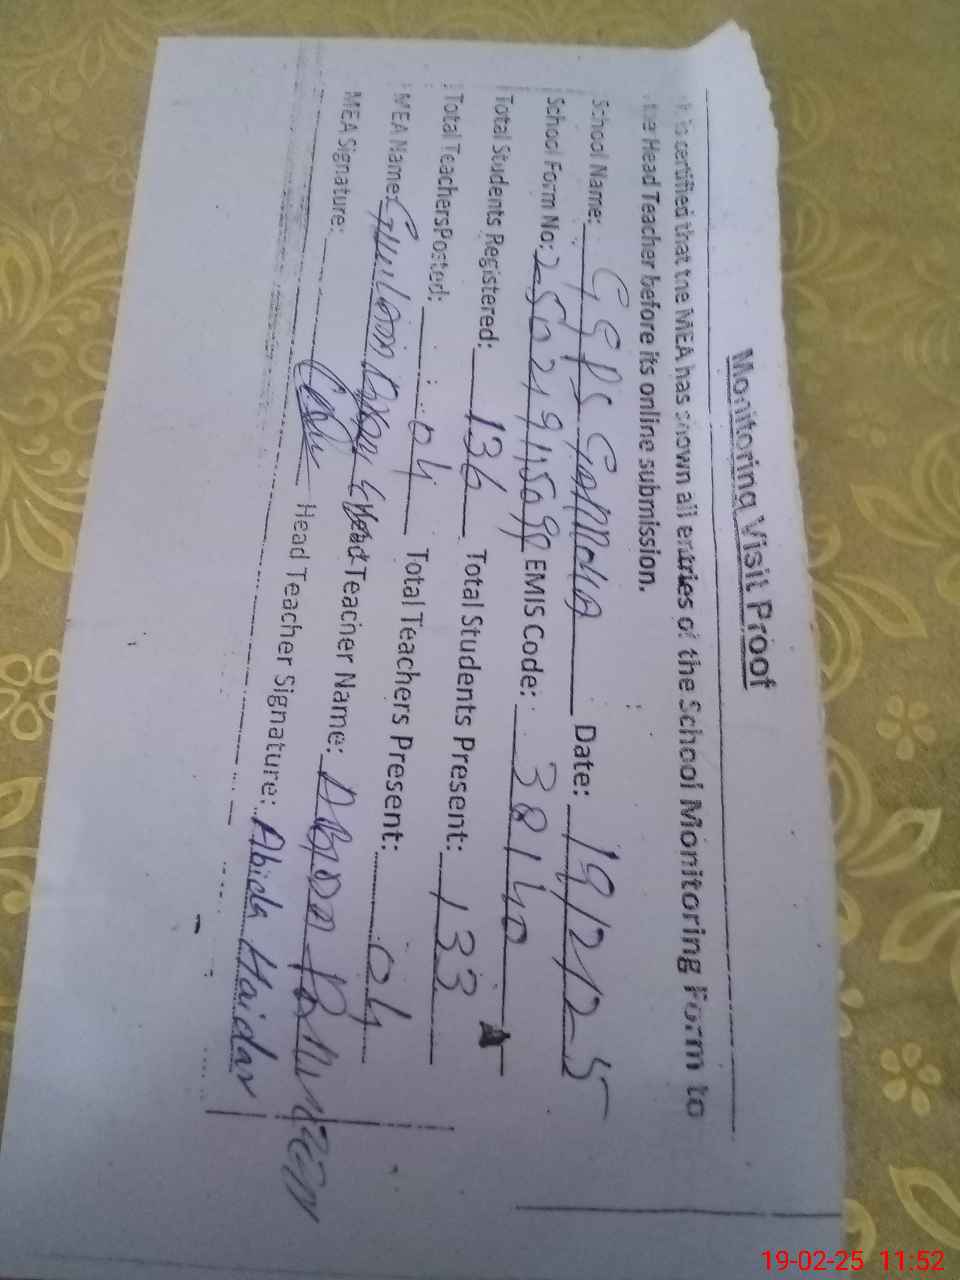 Monitoring Visit Proof
It is certified that the MEA has shown all entries of the School Monitoring Form to
the Head Teacher before its online submission.
School Name: GGPS Date: 19/2/25
School Form No: EMIS Code: 38140
Total Students Registered: 136 Total Students Present: 133
Total TeachersPosted: 04 Total Teachers Present: 04
MEA Name: Head Teacher Name:
MEA Signature: Head Teacher Signature: Abida Haidar
19-02-25 11:52